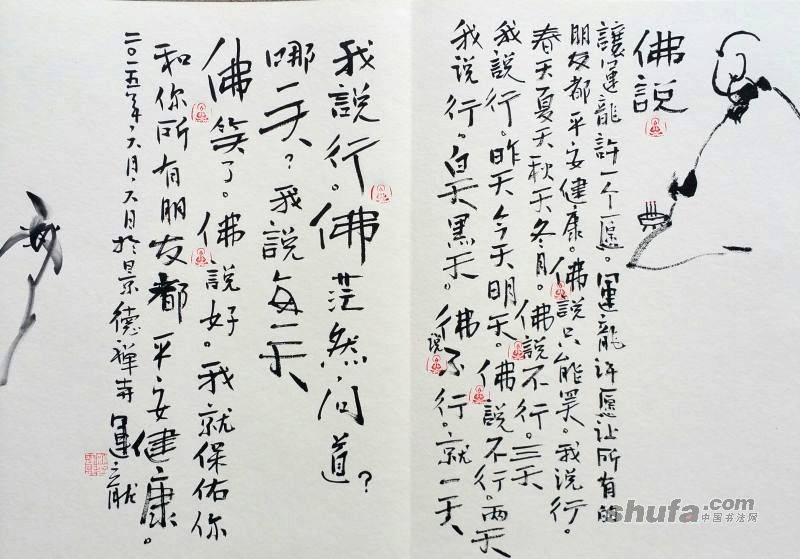 佛說
讓運龍許一个愿。運龍许愿让所有的
朋友都平安健康。佛說只能四天。我说行。
春天夏天秋天冬月。佛說不行。三天
我說行。昨天今天明天。佛說不行。两天
我说行。白天黑天。佛说不行。就一天
我說行。佛茫然问道？
哪一天？我說每一天
佛笑了。佛說好。我就保佑你
和你所有朋友都平安健康。
二〇一五年六月六日於景德禪寺 運龍
shufa.com
中国书法网